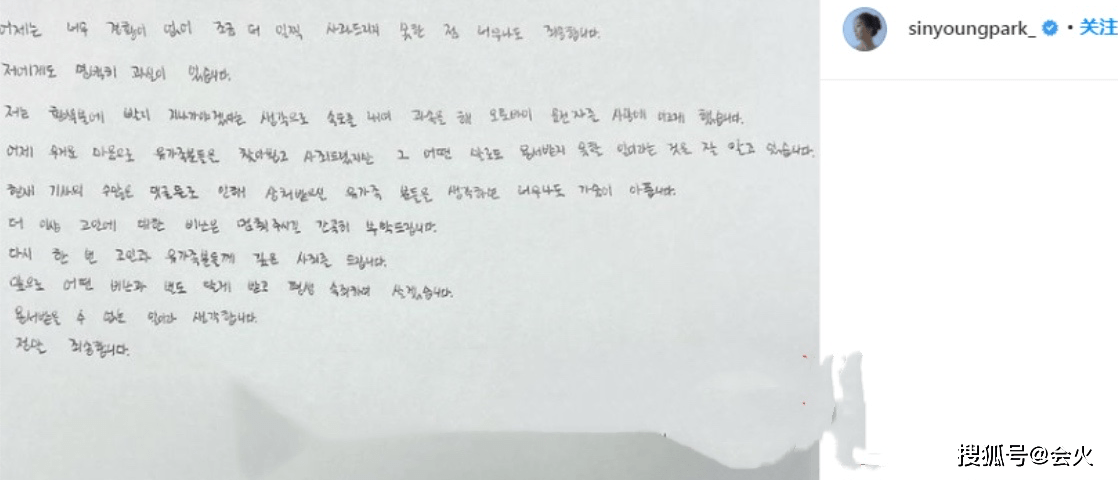 어제는 너무 경황이 없어 조금 더 일찍 사과드리지 못한 점 너무나도 죄송합니다.
저에게도 명백히 과실이 있습니다.
저는 황색불에 빨리 지나가야겠다는 생각으로 속도를 내며 과속을 해 오토바이 운전자를 사망에 이르게 했습니다.
어제 무거운 마음으로 유가족분들을 찾아뵙고 사죄드렸지만 그 어떤 말로도 용서받지 못할 일이라는 것을 잘 알고 있습니다.
현재 기사의 수많은 댓글들로 인해 상처받으실 유가족 분들을 생각하면 너무나도 가슴이 아픕니다.
더 이상 고인에 대한 비난은 멈춰주시길 간곡히 부탁드립니다.
다시 한 번 고인과 유가족분들께 깊은 사죄를 드립니다.
앞으로 어떤 비난과 벌도 달게 받고 평생 속죄하며 살겠습니다.
용서받을 수 없는 일이라 생각합니다.
정말 죄송합니다.
sinyoungpark_ • 关注
搜狐号@会火